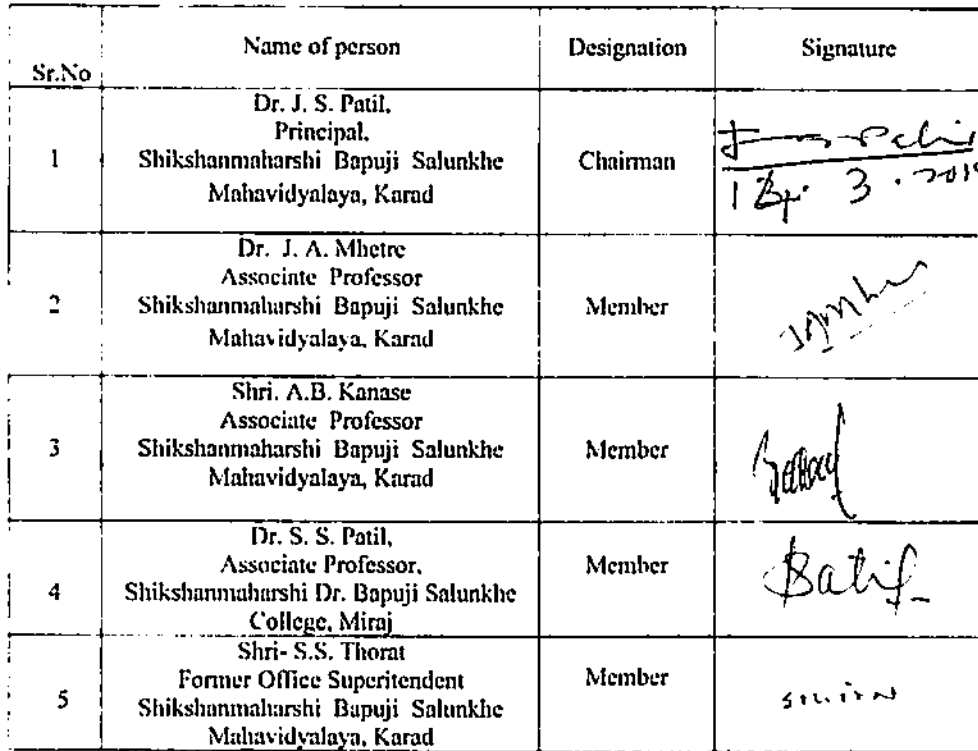 Sr.No Name of person Designation Signature
Dr. J. S. Patil,
Principal,
1 Shikshanmaharshi Bapuji Salunkhe Chairman
Mahavidyalaya, Karad
3 . 2019
Dr. J. A. Mhetre
Associate Professor
2 Shikshanmaharshi Bapuji Salunkhe Member
Mahavidyalaya, Karad
Shri. A.B. Kanase
Associate Professor
3 Shikshanmaharshi Bapuji Salunkhe Member
Mahavidyalaya, Karad
Dr. S. S. Patil,
Associate Professor, Member
4 Shikshanmaharshi Dr. Bapuji Salunkhe
College, Miraj
Shri- S.S. Thorat
Former Office Superitendent Member
5 Shikshanmaharshi Bapuji Salunkhe
Mahavidyalaya, Karad